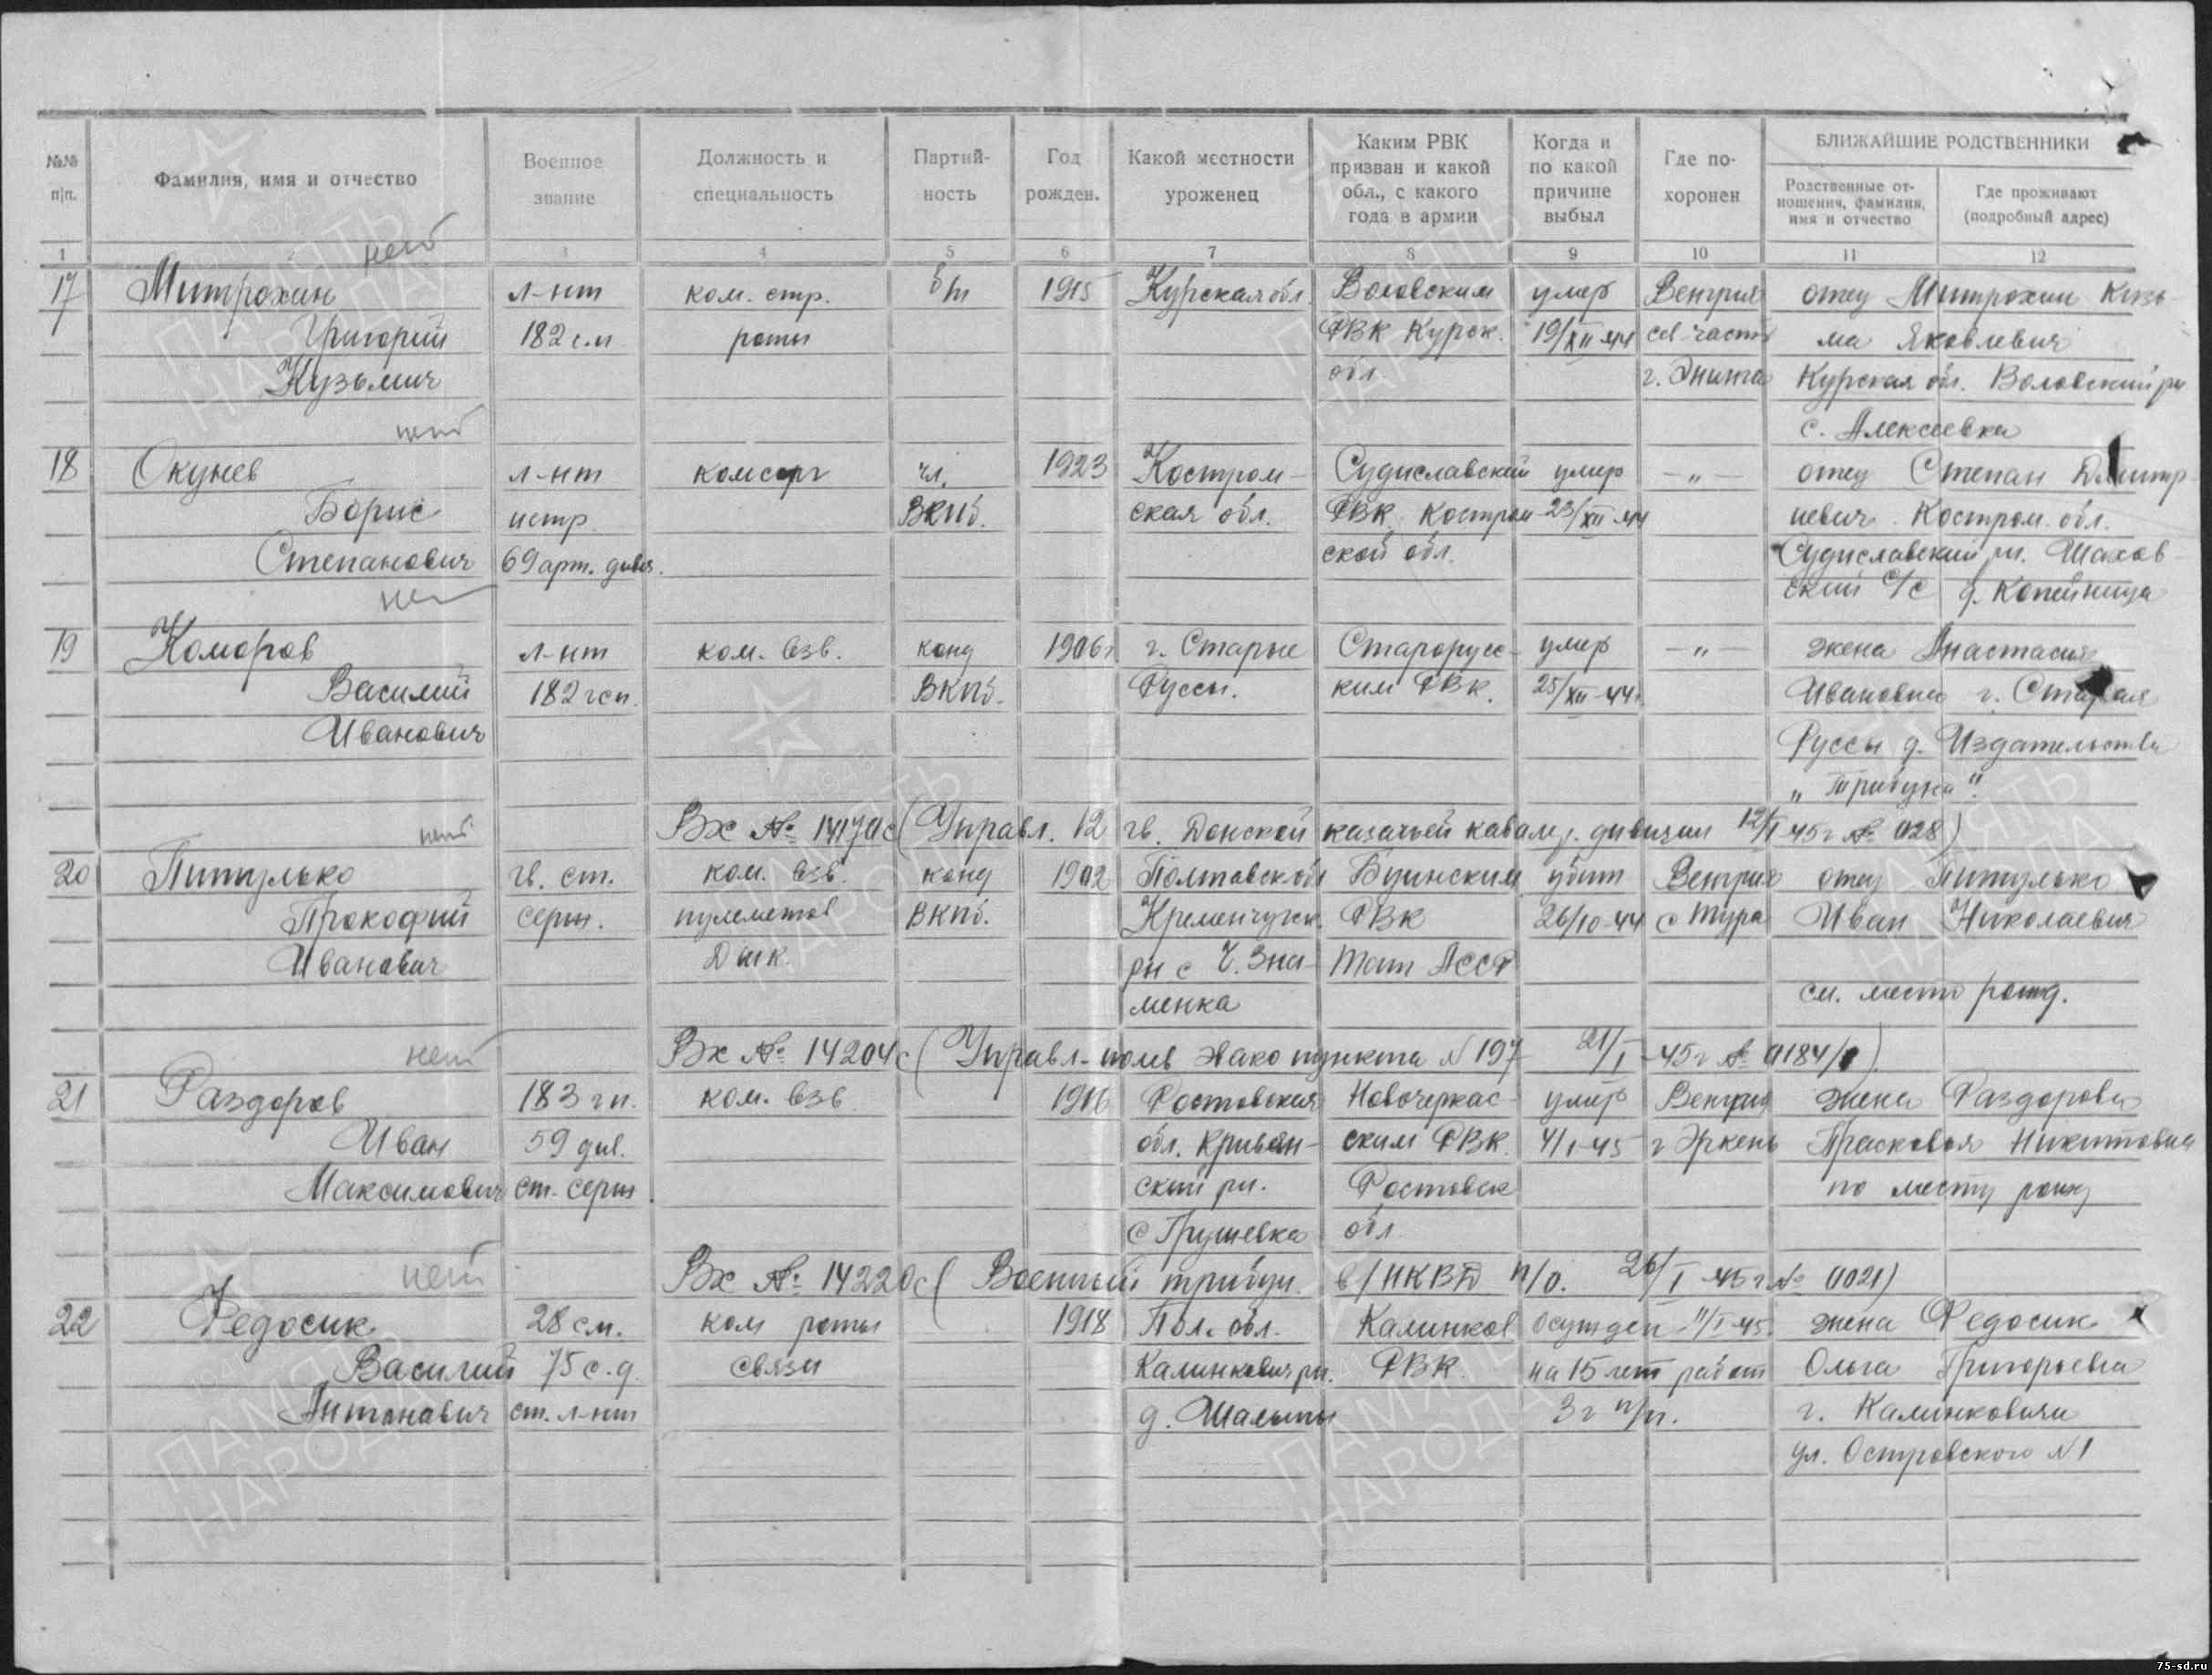 №№ п/п.
Фамилия, имя и отчество
Военное звание
Должность и специальность
Партий-ность
Год рожден.
Какой местности уроженец
Каким РВК призван и какой обл., с какого года в армии
Когда и по какой причине выбыл
Где по-хоронен
БЛИЖАЙШИЕ РОДСТВЕННИКИ
Родственные от-ношения, фамилия, имя и отчество
Где проживают (подробный адрес)
1 2 3 4 5 6 7 8 9 10 11 12
нет
17 Митрохин л-нт ком. стр. б/п 1915 Курская обл. Воловским умер Венгрия отец Митрохин Кузь-
Григорий 182 с.п роты РВК Курск. 19/XII-44 сев. часть ма Яковлевич
Кузьмич обл. г. Курская обл. Воловский рн
с. Алексеевка
нет
18 Окунев л-нт комсорг чл. 1923 Костром- Судиславский умер -„- отец Степан Дмитр-
Борис истр. ВКПб. ская обл. РВК Костром 23/XII-44 иевич. Костром. обл.
Степанович 69 арт. дивиз. ской обл. Судиславский рн. Шахов-
ский с/с д. Копейница
нет
19 Комаров л-нт ком. взв. канд 1906г г. Старые Старорусс- умер -„- жена Анастасия
Василий 182 гсп. ВКПб. Руссы. ким РВК. 25/XII-44г. Ивановна г. Старая
Иванович Руссы д. Издательства
„Трибуна".
нет
Вх № 14170с (Управл. 12 гв. Донской казачьей кавалер. дивизии 12/I 45г № 028)
20 Питулько гв. ст. ком. взв. канд 1902 Полтавск обл Буинским убит Венгрия отец Питулько
Прокофий серж. пулеметов ВКПб. Кременчугск. РВК 26/10-44 с Тура Иван Николаевич
Иванович рн с Ч. Зна- Тат АССР
менка см. место рожд.
нет
Вх № 14204с (Управл. полев эвако пункта N 197 21/I-45г № 0184/ )
21 Раздоров 183 гп. ком. взв 1916 Ростовская Новочеркас- умер Венгрия жена Раздорова
Иван 59 див. обл. Кривян- ским РВК. 4/I-45 г Эркень Прасковья Никитовна
Максимович ст. серж. ский рн. Ростовск по месту рожд
с Грушевка обл.
нет
Вх № 14220с (Военный трибун. в/НКВД п/о. 26/I 45г № 0021)
22 Федосик 28 с.п. ком роты 1918 Пол. обл. Калинков осужден 11/I-45. жена Федосик
Василий 75 с.д. связи Калинкович рн. РВК. на 15 лет работ Ольга Григорьевна
Антонович ст. л-нт д. Шалыпы 3г п/п. г. Калинковичи
ул. Островского N1
ПАМЯТЬ НАРОДА
75-sd.ru